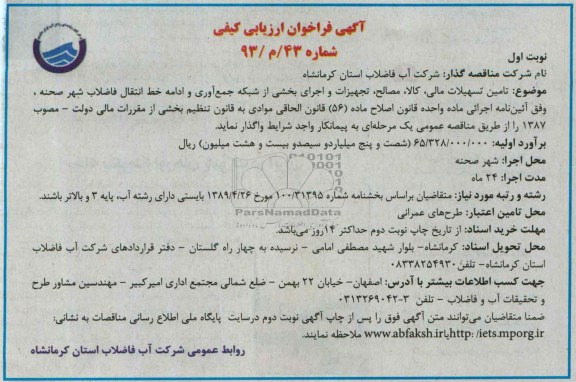 آگهی فراخوان ارزیابی کیفی
شماره ۴۳/م/۹۳
نوبت اول
نام شرکت مناقصه گذار: شرکت آب فاضلاب استان کرمانشاه
موضوع: تامین تسهیلات مالی، کالا، مصالح، تجهیزات و اجرای بخشی از شبکه جمع‌آوری و ادامه خط انتقال فاضلاب شهر صحنه ،
وفق آئین‌نامه اجرائی ماده واحده قانون اصلاح ماده (۵۶) قانون الحاقی موادی به قانون تنظیم بخشی از مقررات مالی دولت - مصوب
۱۳۸۷ را از طریق مناقصه عمومی یک مرحله‌ای به پیمانکار واجد شرایط واگذار نماید.
برآورد اولیه: ۶۵/۳۲۸/۰۰۰/۰۰۰ (شصت و پنج میلیاردو سیصدو بیست و هشت میلیون) ریال
محل اجرا: شهر صحنه
مدت اجرا: ۲۴ ماه
رشته و رتبه مورد نیاز: متقاضیان براساس بخشنامه شماره ۱۰۰/۳۱۳۹۵ مورخ ۱۳۸۹/۴/۲۶ بایستی دارای رشته آب، پایه ۳ و بالاتر باشند.
محل تامین اعتبار: طرح‌های عمرانی
مهلت خرید اسناد: از تاریخ چاپ نوبت دوم حداکثر ۱۴روز می‌باشد.
محل تحویل اسناد: کرمانشاه- بلوار شهید مصطفی امامی - نرسیده به چهار راه گلستان - دفتر قراردادهای شرکت آب فاضلاب
استان کرمانشاه- تلفن۰۸۳۳۸۲۵۴۹۳۰
جهت کسب اطلاعات بیشتر با آدرس: اصفهان- خیابان ۲۲ بهمن - ضلع شمالی مجتمع اداری امیرکبیر - مهندسین مشاور طرح
و تحقیقات آب و فاضلاب - تلفن ۳-۰۳۱۳۲۶۹۰۴۲
ضمنا متقاضیان می‌توانند متن آگهی فوق را پس از چاپ آگهی نوبت دوم درسایت پایگاه ملی اطلاع رسانی مناقصات به نشانی:
http: /iets.mporg.ir یا www.abfaksh.ir ملاحظه نمایند.
روابط عمومی شرکت آب فاضلاب استان کرمانشاه
ParsNamadData